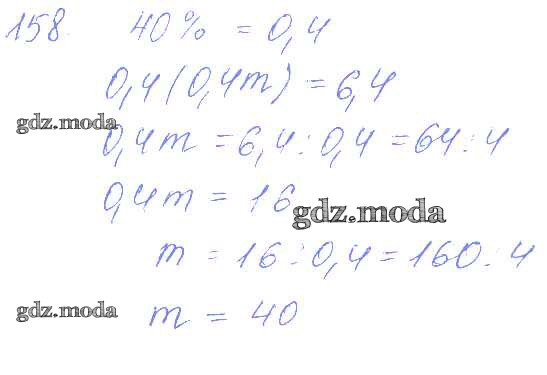 158. 40% = 0,4
0,4(0,4m) = 6,4
gdz.moda
0,4m = 6,4 : 0,4 = 64 : 4
0,4m = 16
gdz.moda
m = 16 : 0,4 = 160 : 4
gdz.moda
m = 40